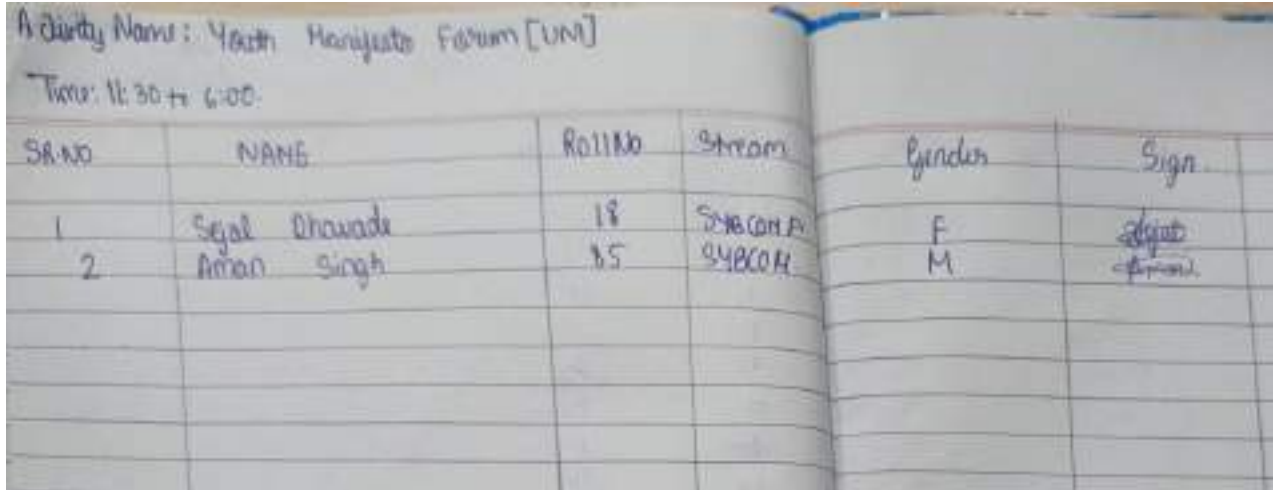 Activity Name: Youth Manifesto Forum [UNI]
Time: 11:30 to 6:00.
SR.NO NAME Roll No Stream Gender Sign
1 Sejal Dhawade 18 SYBCOM A F Sejal
2 Aman Singh 85 SYBCOM M Aman